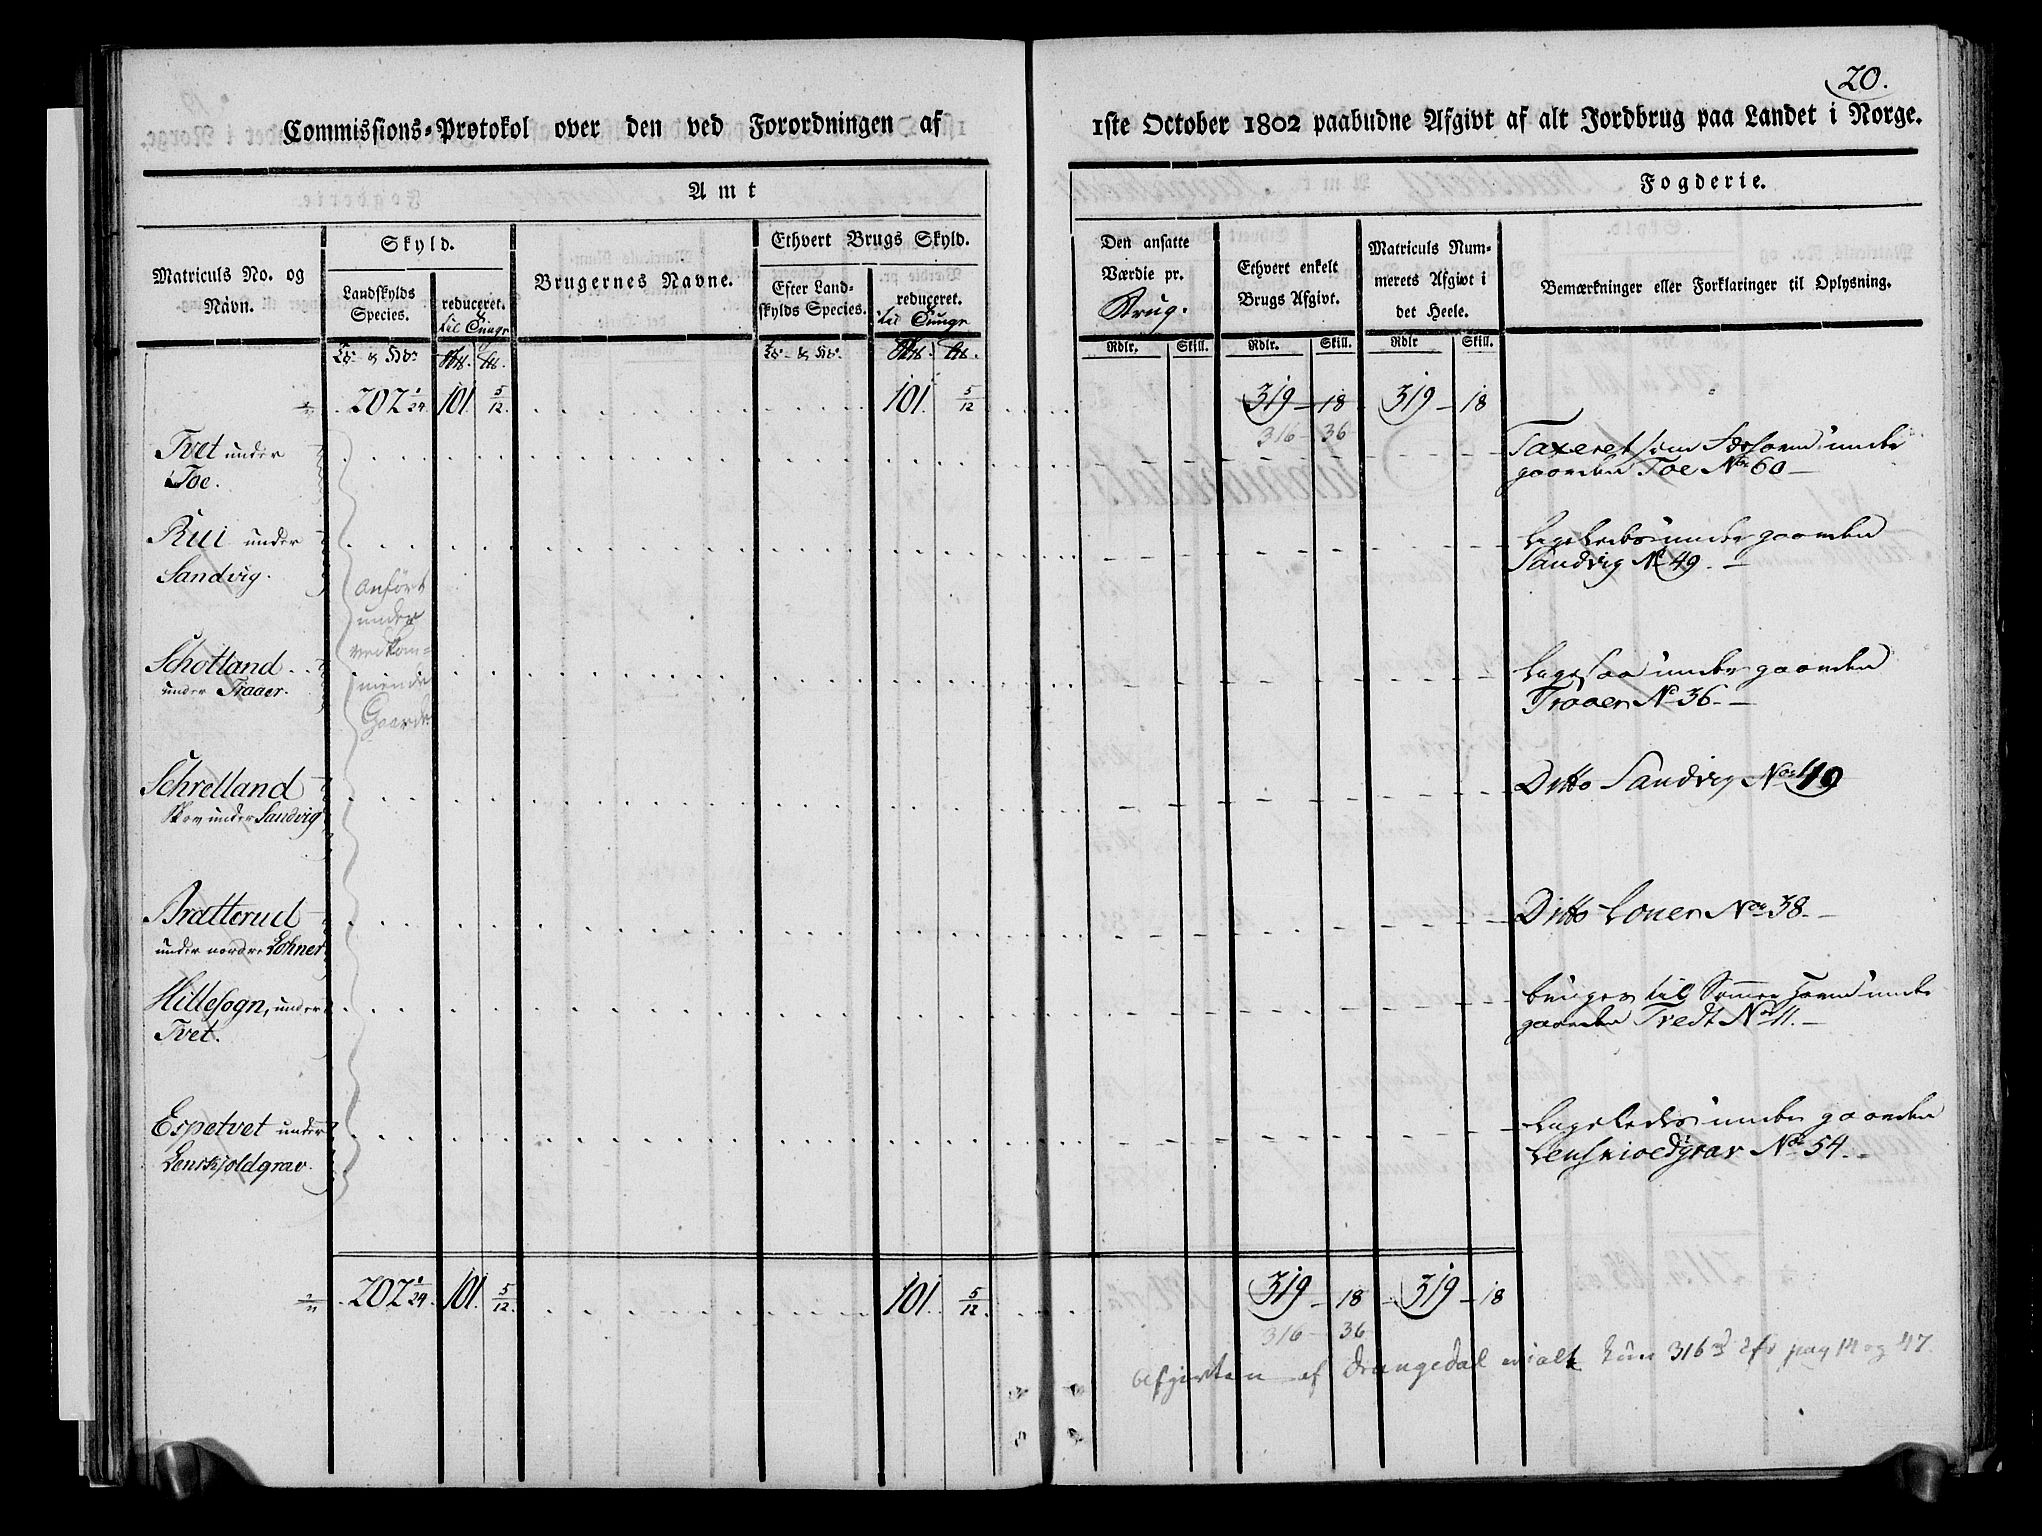 20.
Commissions-Protokol over den ved Forordningen af 1ste October 1802 paabudne Afgivt af alt Jordbrug paa Landet i Norge.
Amt
Fogderie.
Matriculs No. og Navn.
Skyld.
Landskylds Species.
reduceret.
til Tunge
Brugernes Navne.
Ethvert Brugs Skyld.
Efter Landskylds Species.
reduceret.
til Tunge
Den ansatte Værdie pr.
Brug.
Ethvert enkelt Brugs Afgivt.
Matriculs Nummerets Afgivt i det Heele.
Bemærkninger eller Forklaringer til Oplysning.
Rdlr. Skill. Rdlr. Skill. Rdlr Skill.
202 1/24. 101. 5/12. 101. 5/12 319 - 18 319 - 18
316 - 36
Tvet under
Toe.
Taxeret som under
gaarden Toe No 60 -
Rui under
Sandvig.
Ligeledes under gaarden
Sandvig No 49. -
Anført
under
vedkom-
mende
Gaarde
Schotland
under Traaer.
Ligesaa under gaarden
Traaen No 36. -
Schrelland
Skov under Sandvig
Ditto Sandvig No 49
Bratterud
under nordre Lohner
Ditto Lonen No 38. -
Hillesogn, under
Tvet.
bruges til Sommer Havn under
gaarden Tvedt No 11. -
Espetvet under
Lensvoldgrav.
Ligeledes under gaarden
No 54. -
202 1/24. 101. 5/12. 101. 5/12. 319 - 18 - 319 - 18
316 - 36
Afgivten af Drangedal er ialt kun 316 pag 14 og 47.